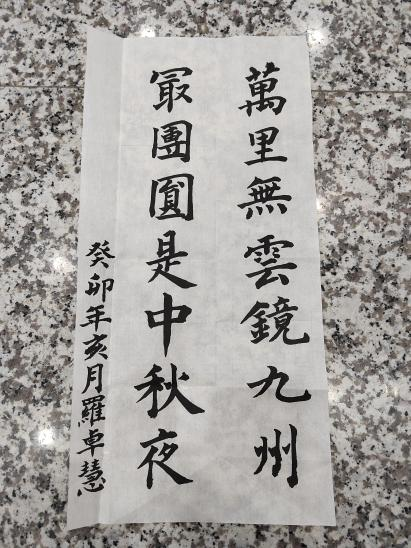 萬里無雲鏡九州
冣團圓是中秋夜
癸卯年亥月羅卓慧